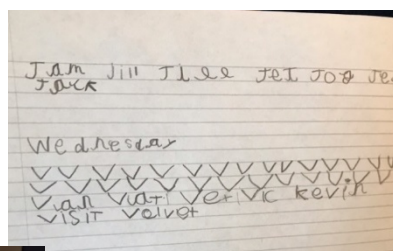 Jam Jill Jlee Jet Jog Je
Jack
Wednesday
V V V V V V V V V V V V V V V V
V V V V V V V V V V V V V V V
Van Vat Vet Vic Kevin
Visit Velvet